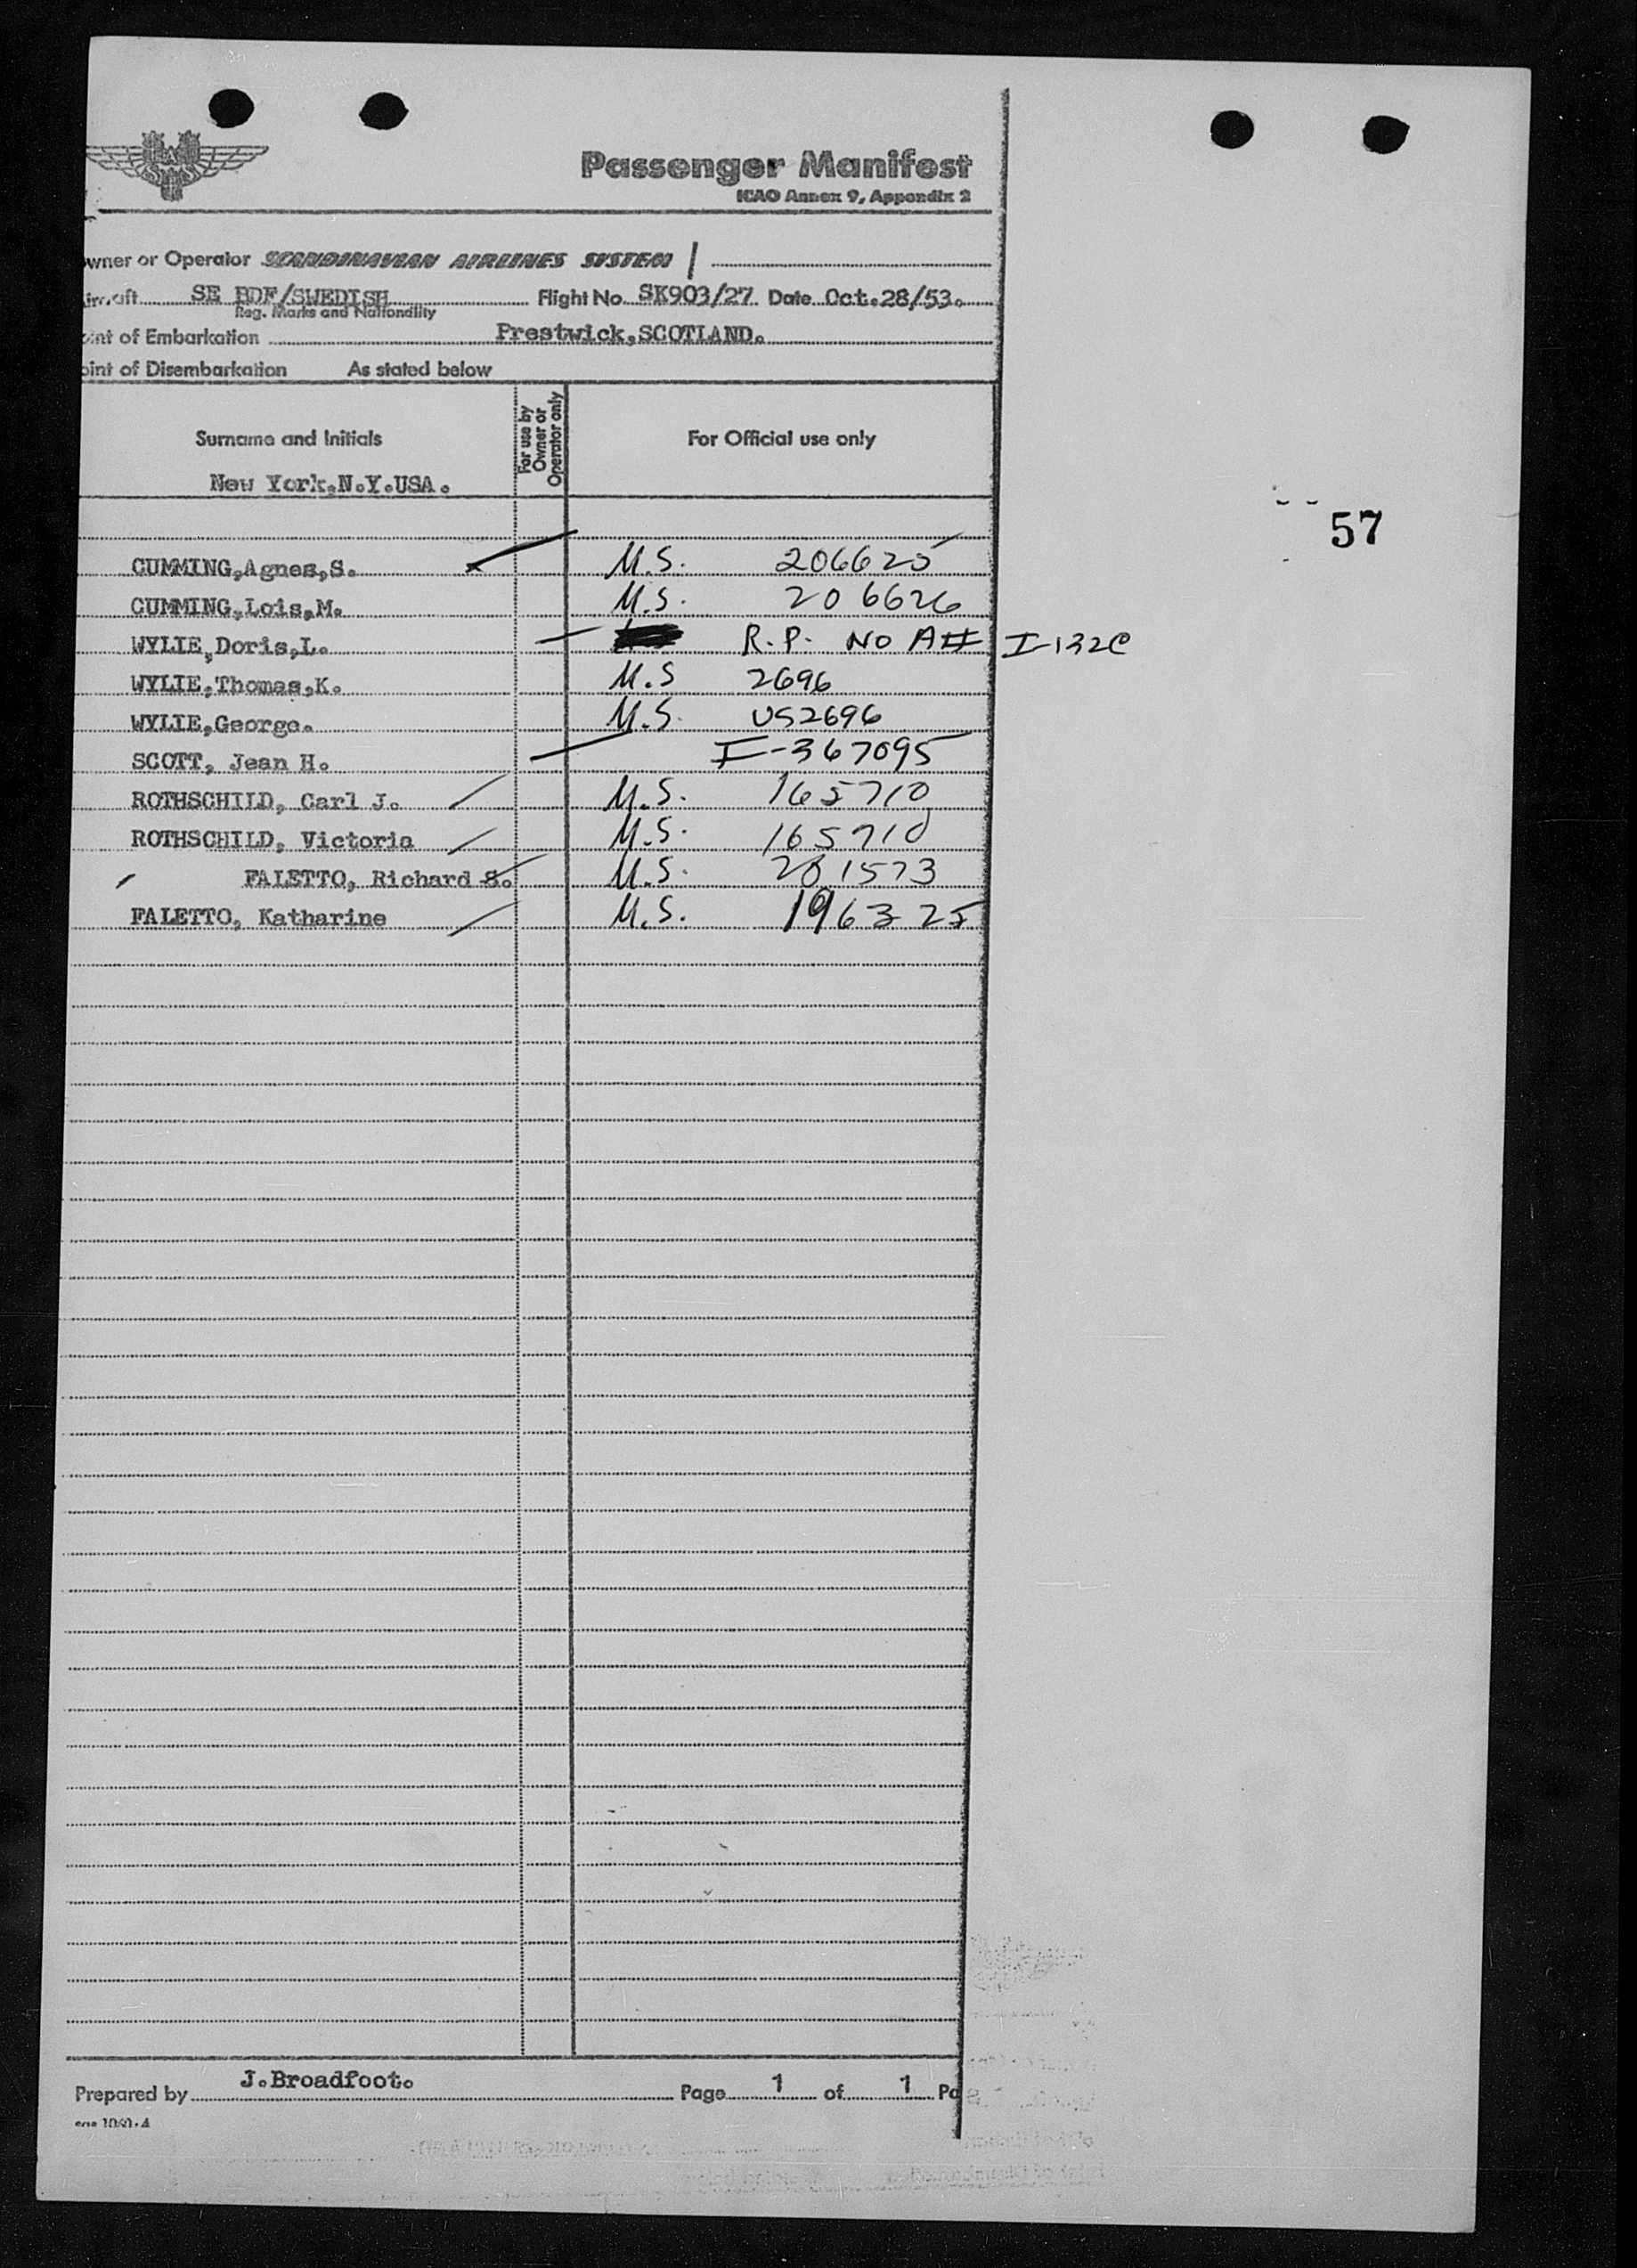 Passenger Manifest
ICAO Annex 9, Appendix 2
wner or Operator SCANDINAVIAN AIRLINES SYSTEM
SE BDF/SWEDISH Flight No. SK903/27 Date Oct.28/53.
Reg. Marks and Nationality
int of Embarkation Prestwick,SCOTLAND.
oint of Disembarkation As stated below
Surname and Initials
For use by Owner or Operator only
For Official use only
New York.N.Y.USA.
57
CUMMING,Agnes,S. U.S. 206625
CUMMING,Lois,M. U.S. 206626
WYLIE,Doris,L. R.P. NO A# I-132C
WYLIE,Thomas,K. U.S 2696
WYLIE,George. U.S. US2696
SCOTT, Jean H. I-367095
ROTHSCHILD, Carl J. U.S. 165710
ROTHSCHILD, Victoria U.S. 165710
FALETTO, Richard S. U.S. 201573
FALETTO, Katharine U.S. 196325
J.Broadfoot.
Prepared by Page 1 of 1